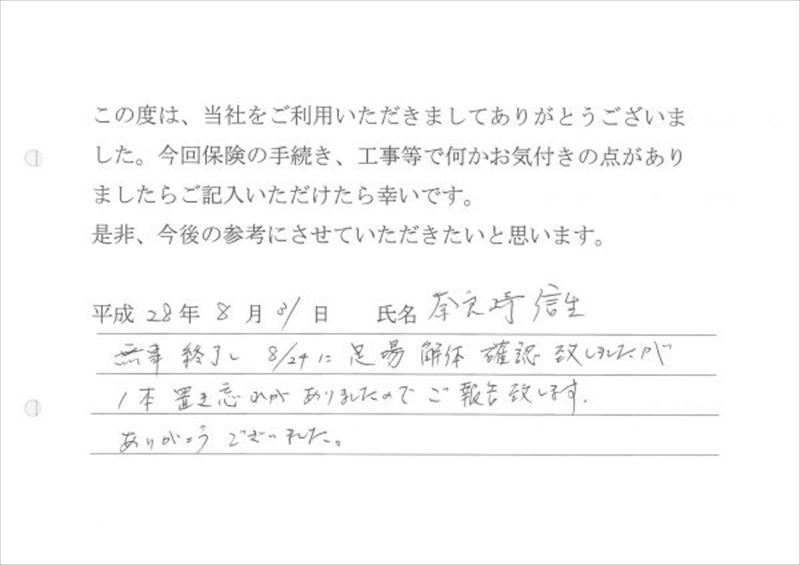 この度は、当社をご利用いただきましてありがとうございま
した。今回保険の手続き、工事等で何かお気付きの点があり
ましたらご記入いただけたら幸いです。
是非、今後の参考にさせていただきたいと思います。
平成 28年 8月 31日 氏名 奈良崎 信生
無事 終了し 8/24に 足場 解体 確認 致しましたが
1本 置き忘れが ありましたので ご報告致します.
ありがとう ございました。